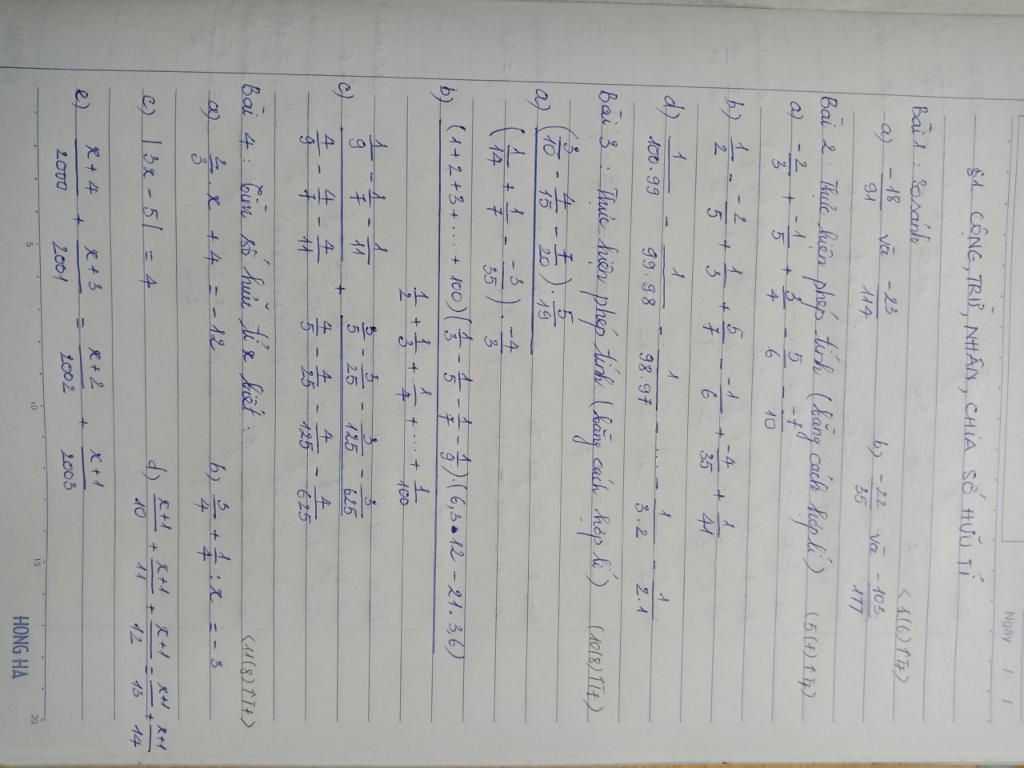 Ngày / /
§1 CỘNG, TRỪ, NHÂN, CHIA SỐ HỮU TỈ
Bài 1: So sánh <1(6)TT7>
a) -18/91 và -23/114 b) -22/35 và -103/177
Bài 2: Thực hiện phép tính (bằng cách hợp lí) (5(7)TT7)
a) -2/3 + -1/5 + 3/4 - 5/6 - -7/10
b) 1/2 - -2/5 + 1/3 + 5/7 - -1/6 + -4/35 + 1/41
d) 1/100.99 - 1/99.98 - 1/98.97 - ... - 1/3.2 - 1/2.1
Bài 3: Thực hiện phép tính (bằng cách hợp lí) (10(8)TT7)
a) (3/10 - 4/15 - 7/20) . 5/19
(1/14 + 1/7 - -3/35) . -4/3
b) (1+2+3+...+100)(1/3 - 1/5 - 1/7 - 1/9).(6,3.12 - 21.3,6)
1/2 + 1/3 + 1/4 + ... + 1/100
c) 1/9 - 1/7 - 1/11 + 3/5 - 3/25 - 3/125 - 3/625
4/9 - 4/7 - 4/11 4/5 - 4/25 - 4/125 - 4/625
Bài 4: Tìm số hữu tỉ x biết. <11(8)TT7>
a) 2/3 . x + 4 = -12 b) 3/4 + 1/4 : x = -3
c) |3x - 5| = 4 d) x+1/10 + x+1/11 + x+1/12 = x+1/13 + x+1/14
e) x+4/2000 + x+3/2001 = x+2/2002 + x+1/2003
5 10 15 20
HONG HA